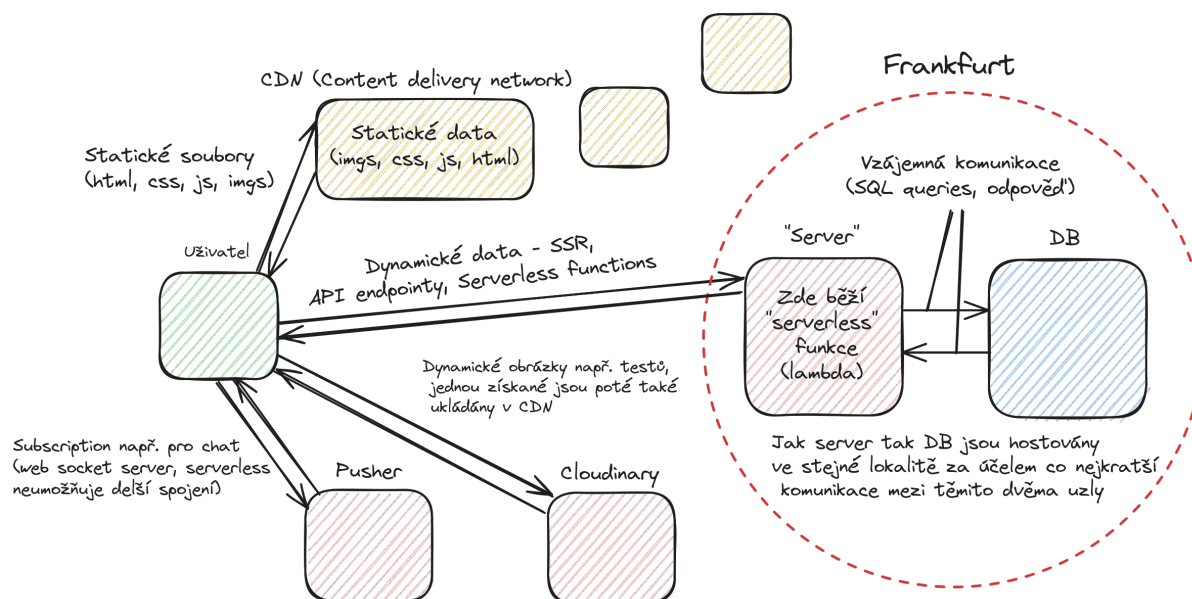 Frankfurt
CDN (Content delivery network)
Statické data
(imgs, css, js, html)
Statické soubory
(html, css, js, imgs)
Vzájemná komunikace
(SQL queries, odpověď)
Uživatel
Dynamické data - SSR,
API endpointy, Serverless functions
"Server"
DB
Zde běží
"serverless"
funkce
(lambda)
Dynamické obrázky např. testů,
jednou získané jsou poté také
ukládány v CDN
Subscription např. pro chat
(web socket server, serverless
neumožňuje delší spojení)
Pusher
Cloudinary
Jak server tak DB jsou hostovány
ve stejné lokalitě za účelem co nejkratší
komunikace mezi těmito dvěma uzly